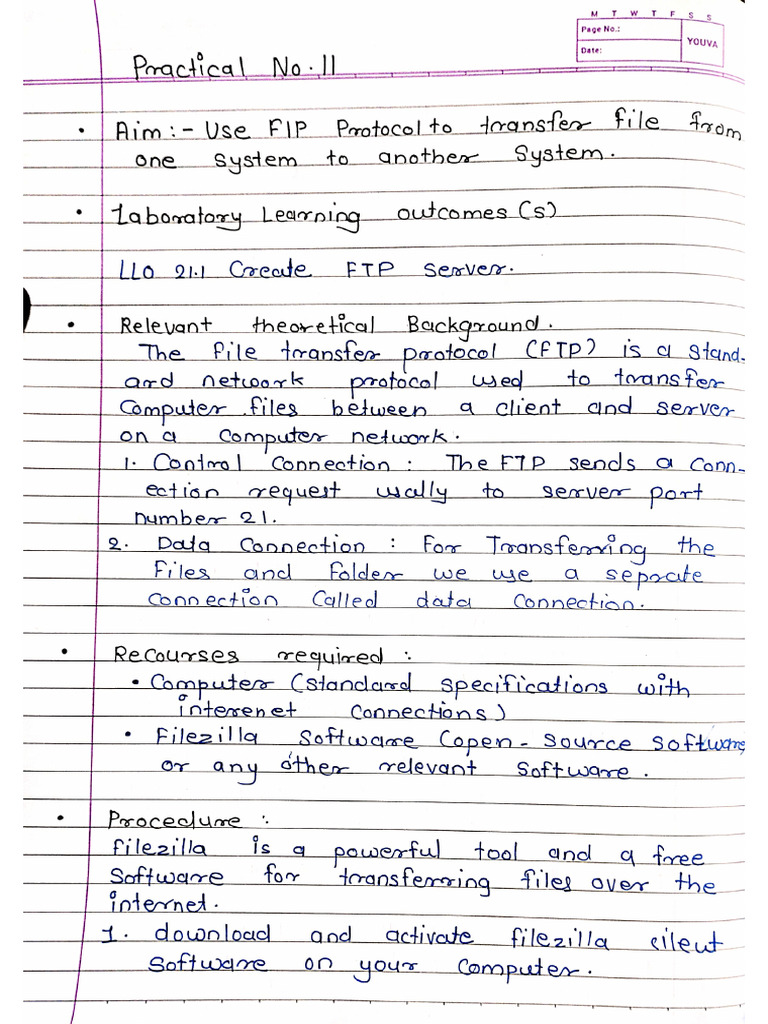 M T W T F S S
Page No.:
Date:
YOUVA
Practical No. 11
• Aim :- Use FIP Protocol to transfer file from
one system to another System.
• Laboratory Learning outcomes (s)
LLO 21.1 Create FTP server.
• Relevant theoretical Background.
The file transfer protocol (FTP) is a stand-
ard network protocol used to transfer
Computer files between a client and server
on a computer network.
1. Control Connection : The FTP sends a Conn-
ection request usally to server port
number 21.
2. Data Connection : For Transferring the
Files and Folder we use a seprate
connection Called data Connection.
• Recourses required :
• Computer (standard specifications with
interenet connections)
• Filezilla Software (open-source software
or any other relevant Software.
• Procedure :
Filezilla is a powerful tool and a free
Software for transferring files over the
internet.
1. download and activate filezilla cileut
Software on your Computer.